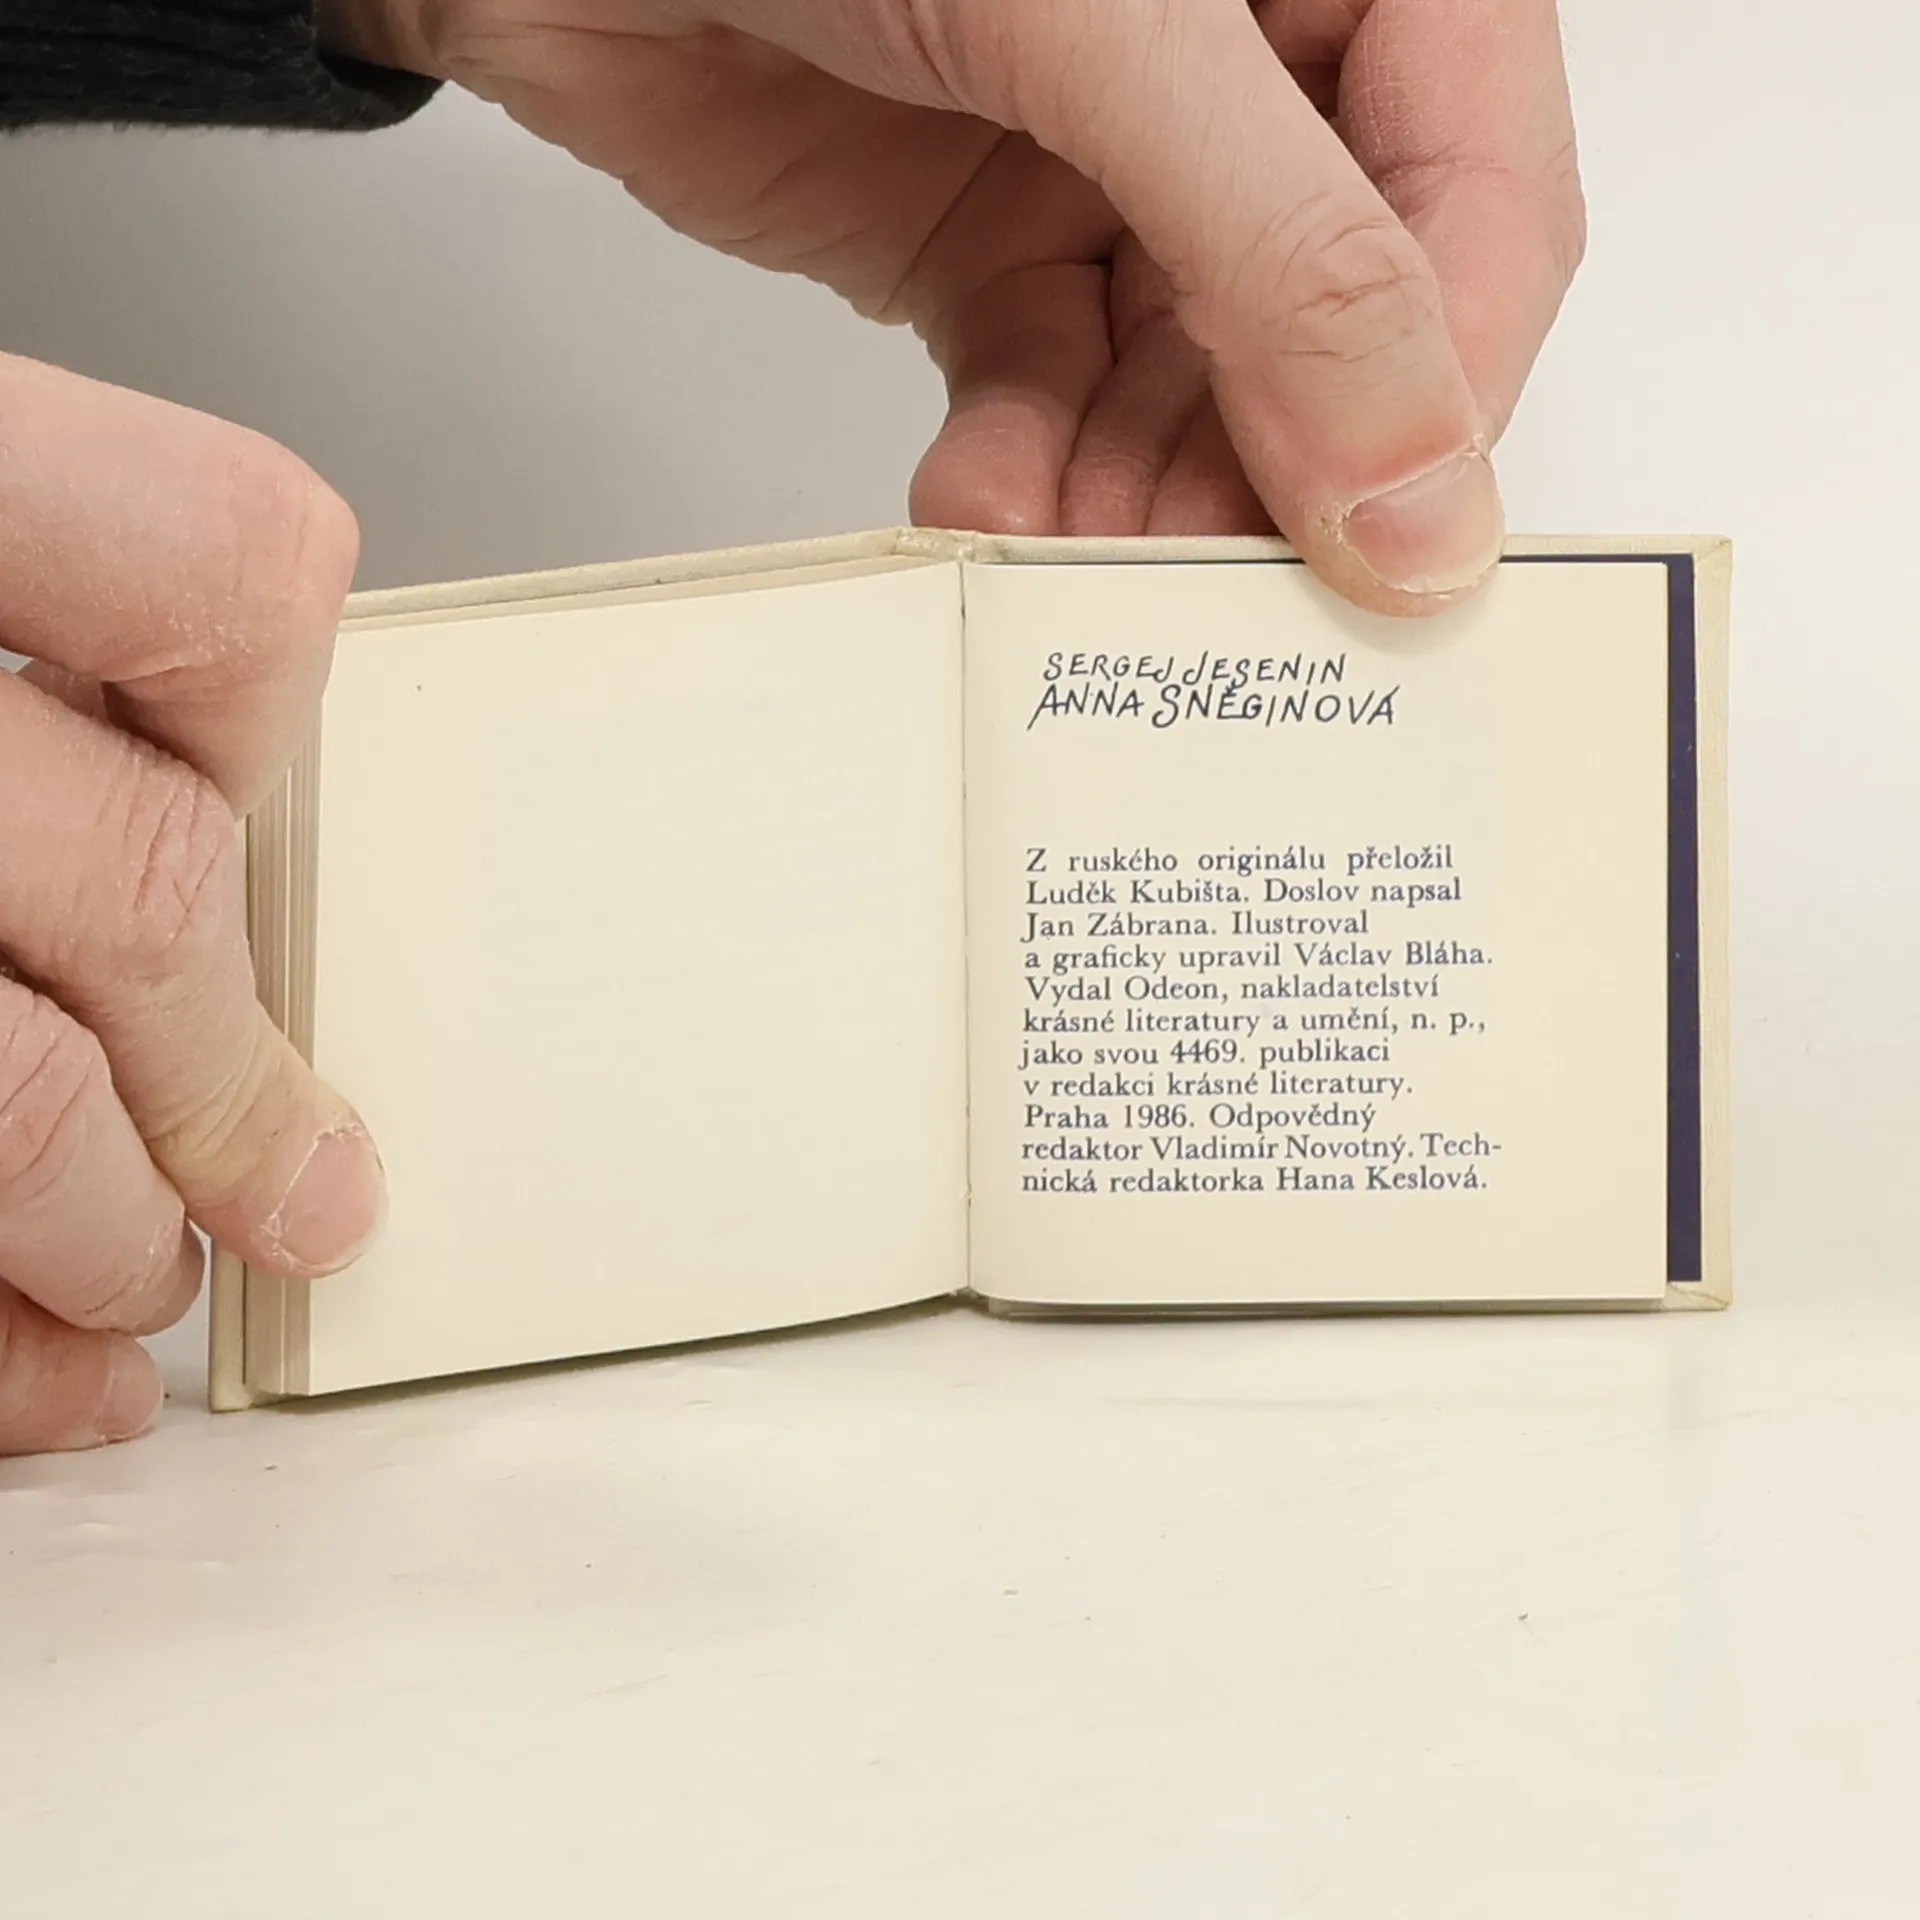 SERGEJ JESENIN
ANNA SNĚGINOVÁ
Z ruského originálu přeložil
Luděk Kubišta. Doslov napsal
Jan Zábrana. Ilustroval
a graficky upravil Václav Bláha.
Vydal Odeon, nakladatelství
krásné literatury a umění, n. p.,
jako svou 4469. publikaci
v redakci krásné literatury.
Praha 1986. Odpovědný
redaktor Vladimír Novotný. Tech-
nická redaktorka Hana Keslová.